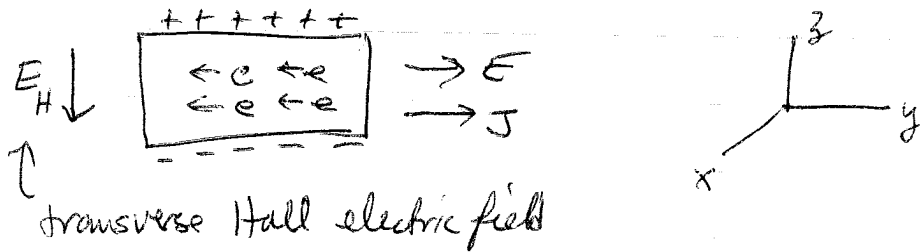 + + + + + +
z
E_H ↓ ← e ← e → E
← e ← e → J
y
x
- - - - - -
transverse Hall electric field